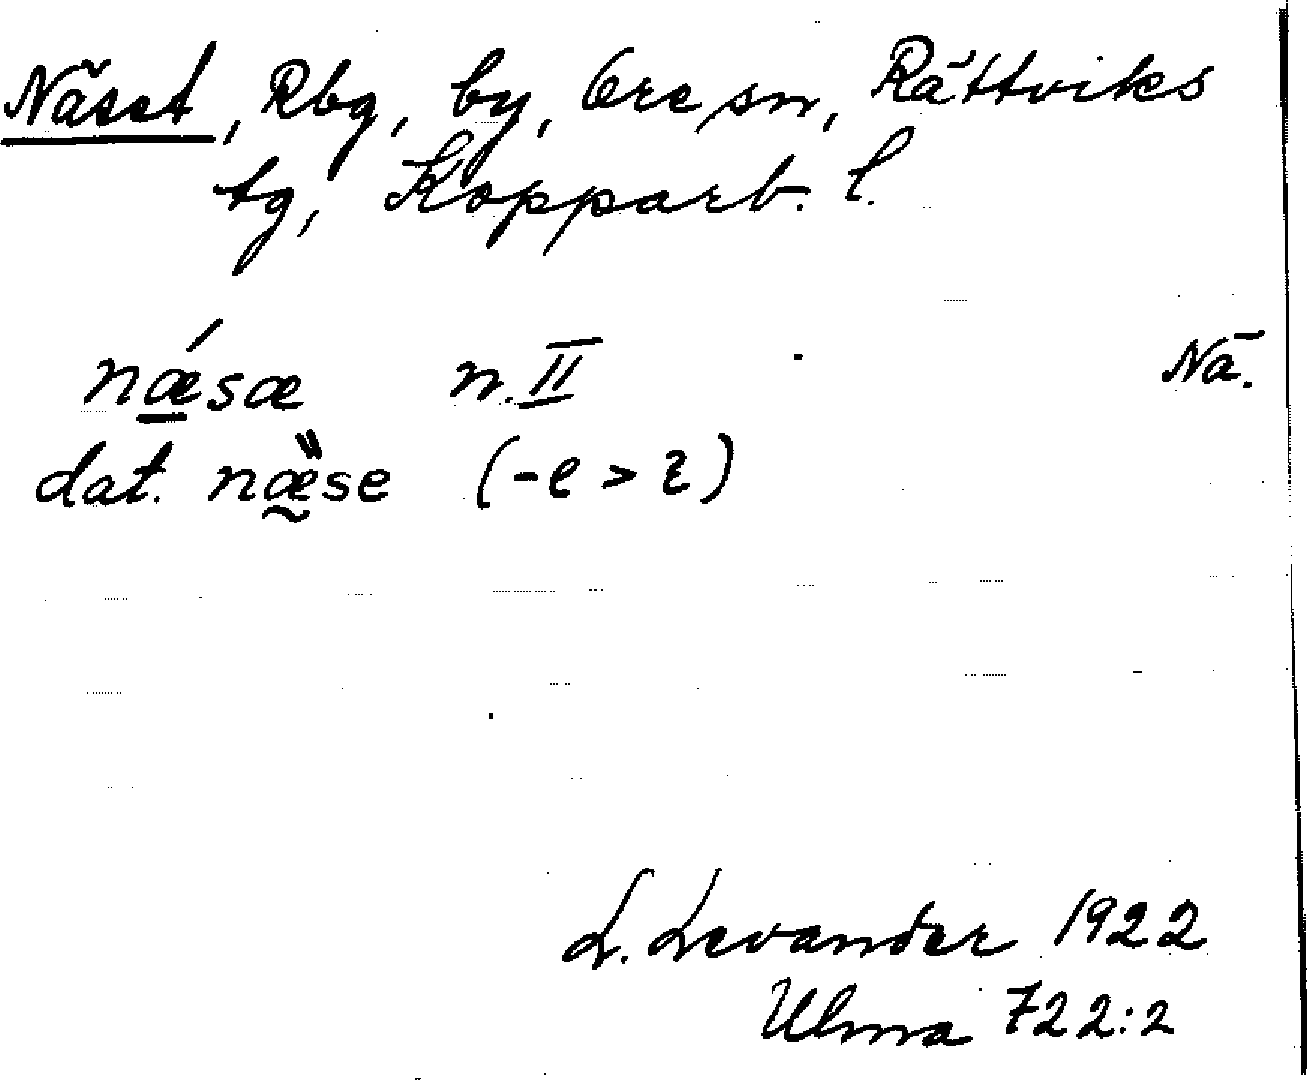 Näset, Rbg, by, Ore sn, Rättviks
tg, Kopparb. l.
nǽ̲sæ n. II Nä.
dat. næ̰̏se (-e > ꭋ)
L. Levander 1922
Ulma 722:2